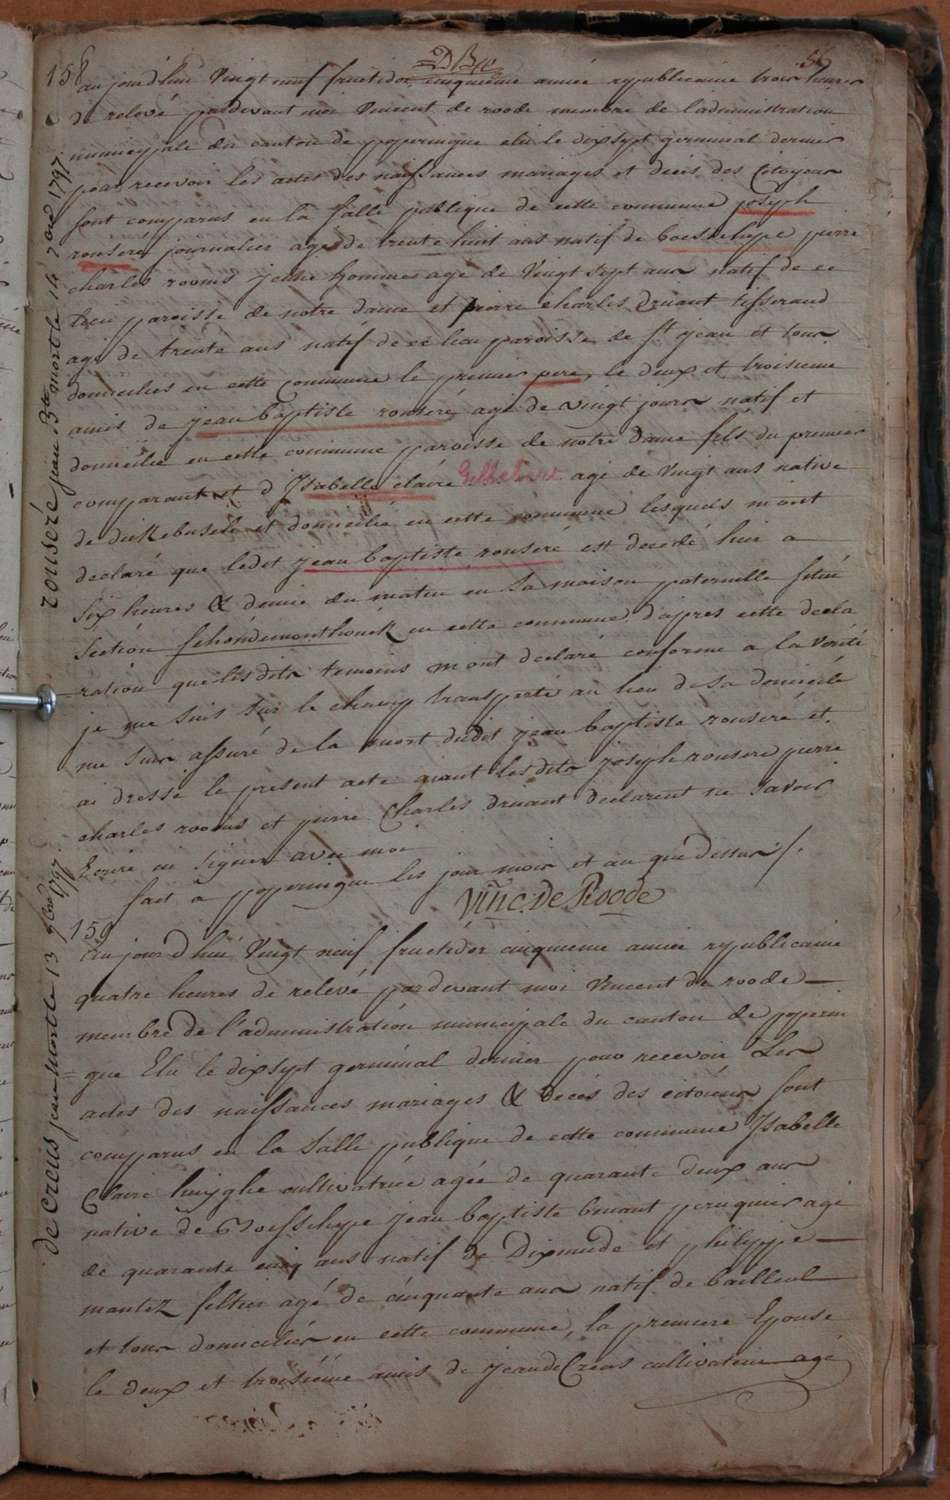 DBic
56
158
aujourd'hui Vingt neuf fructidor cinquieme année republicaine trois heures
de relevé pardevant moi Vincent de roode membre de l'administration
municipale du canton de poperingue elu le dixsept germinal dernier
pour recevoir les actes des naissances mariages et decès des Citoyens
sont comparus en la salle publique de cette commune joseph
rouseré journalier agé de trente huit ans natif de boeseheppe pierre
charles rooms jeune homme agé de Vingt sept ans natif de ce
lieu paroisse de notre dame et pierre charles druant tisserand
agé de trente ans natif de ce lieu paroisse de st jean et tous
domiciliés en cette commune le premier pere, le deux et troisieme
amis de jean baptiste rouseré agé de vingt jours natif et
domicilié en cette commune paroisse de notre dame fils du premier
comparant et d'Isabelle claire agé de Vingt ans native
de dickebusch et domicilié en cette commune lesquels m'ont
declaré que ledit jean baptiste rouseré est decedé hier a
six heures & demie du matin en sa maison paternelle situé
section en cette commune d'apres cette decla
ration que lesdits temoins m'ont declaré conforme a la Verité
je me suis sur le champ transporté au lieu de sa domicile
me suis assuré de la mort dudit jean baptiste rouseré et
ai dressé le present acte quant lesdits joseph rouseré pierre
charles rooms et pierre Charles druant declarent ne savoir
Ecrire ni signer avec moi
fait a poperingue les jour mois et an que dessus ./.
Vinc. De Roode
159
Aujourd'hui Vingt neuf fructidor cinquieme année republicaine
quatre heures de relevé pardevant moi Vincent de roode
membre de l'administration municipale du canton de poperin
= gue Elu le dixsept germinal dernier pour recevoir Les
actes des naissances mariages & decès des citoiens sont
comparus en la salle publique de cette commune Isabelle
Claire huyghe cultivatrice agée de quarante deux ans
native de Boesseheppe jean baptiste bruant peruquier agé
de quarante cinq ans natif de Dixmude et philippe
mantez seltier agé de cinquante ans natif de bailleul
et tous domiciliés en cette commune, la premiere Epouse
le deux et troisiéme amis de jean de Creus cultivateur agé
rouseré jean Bte mort le 14 7bre 1797
de creus jean mort le 13 7bre 1797